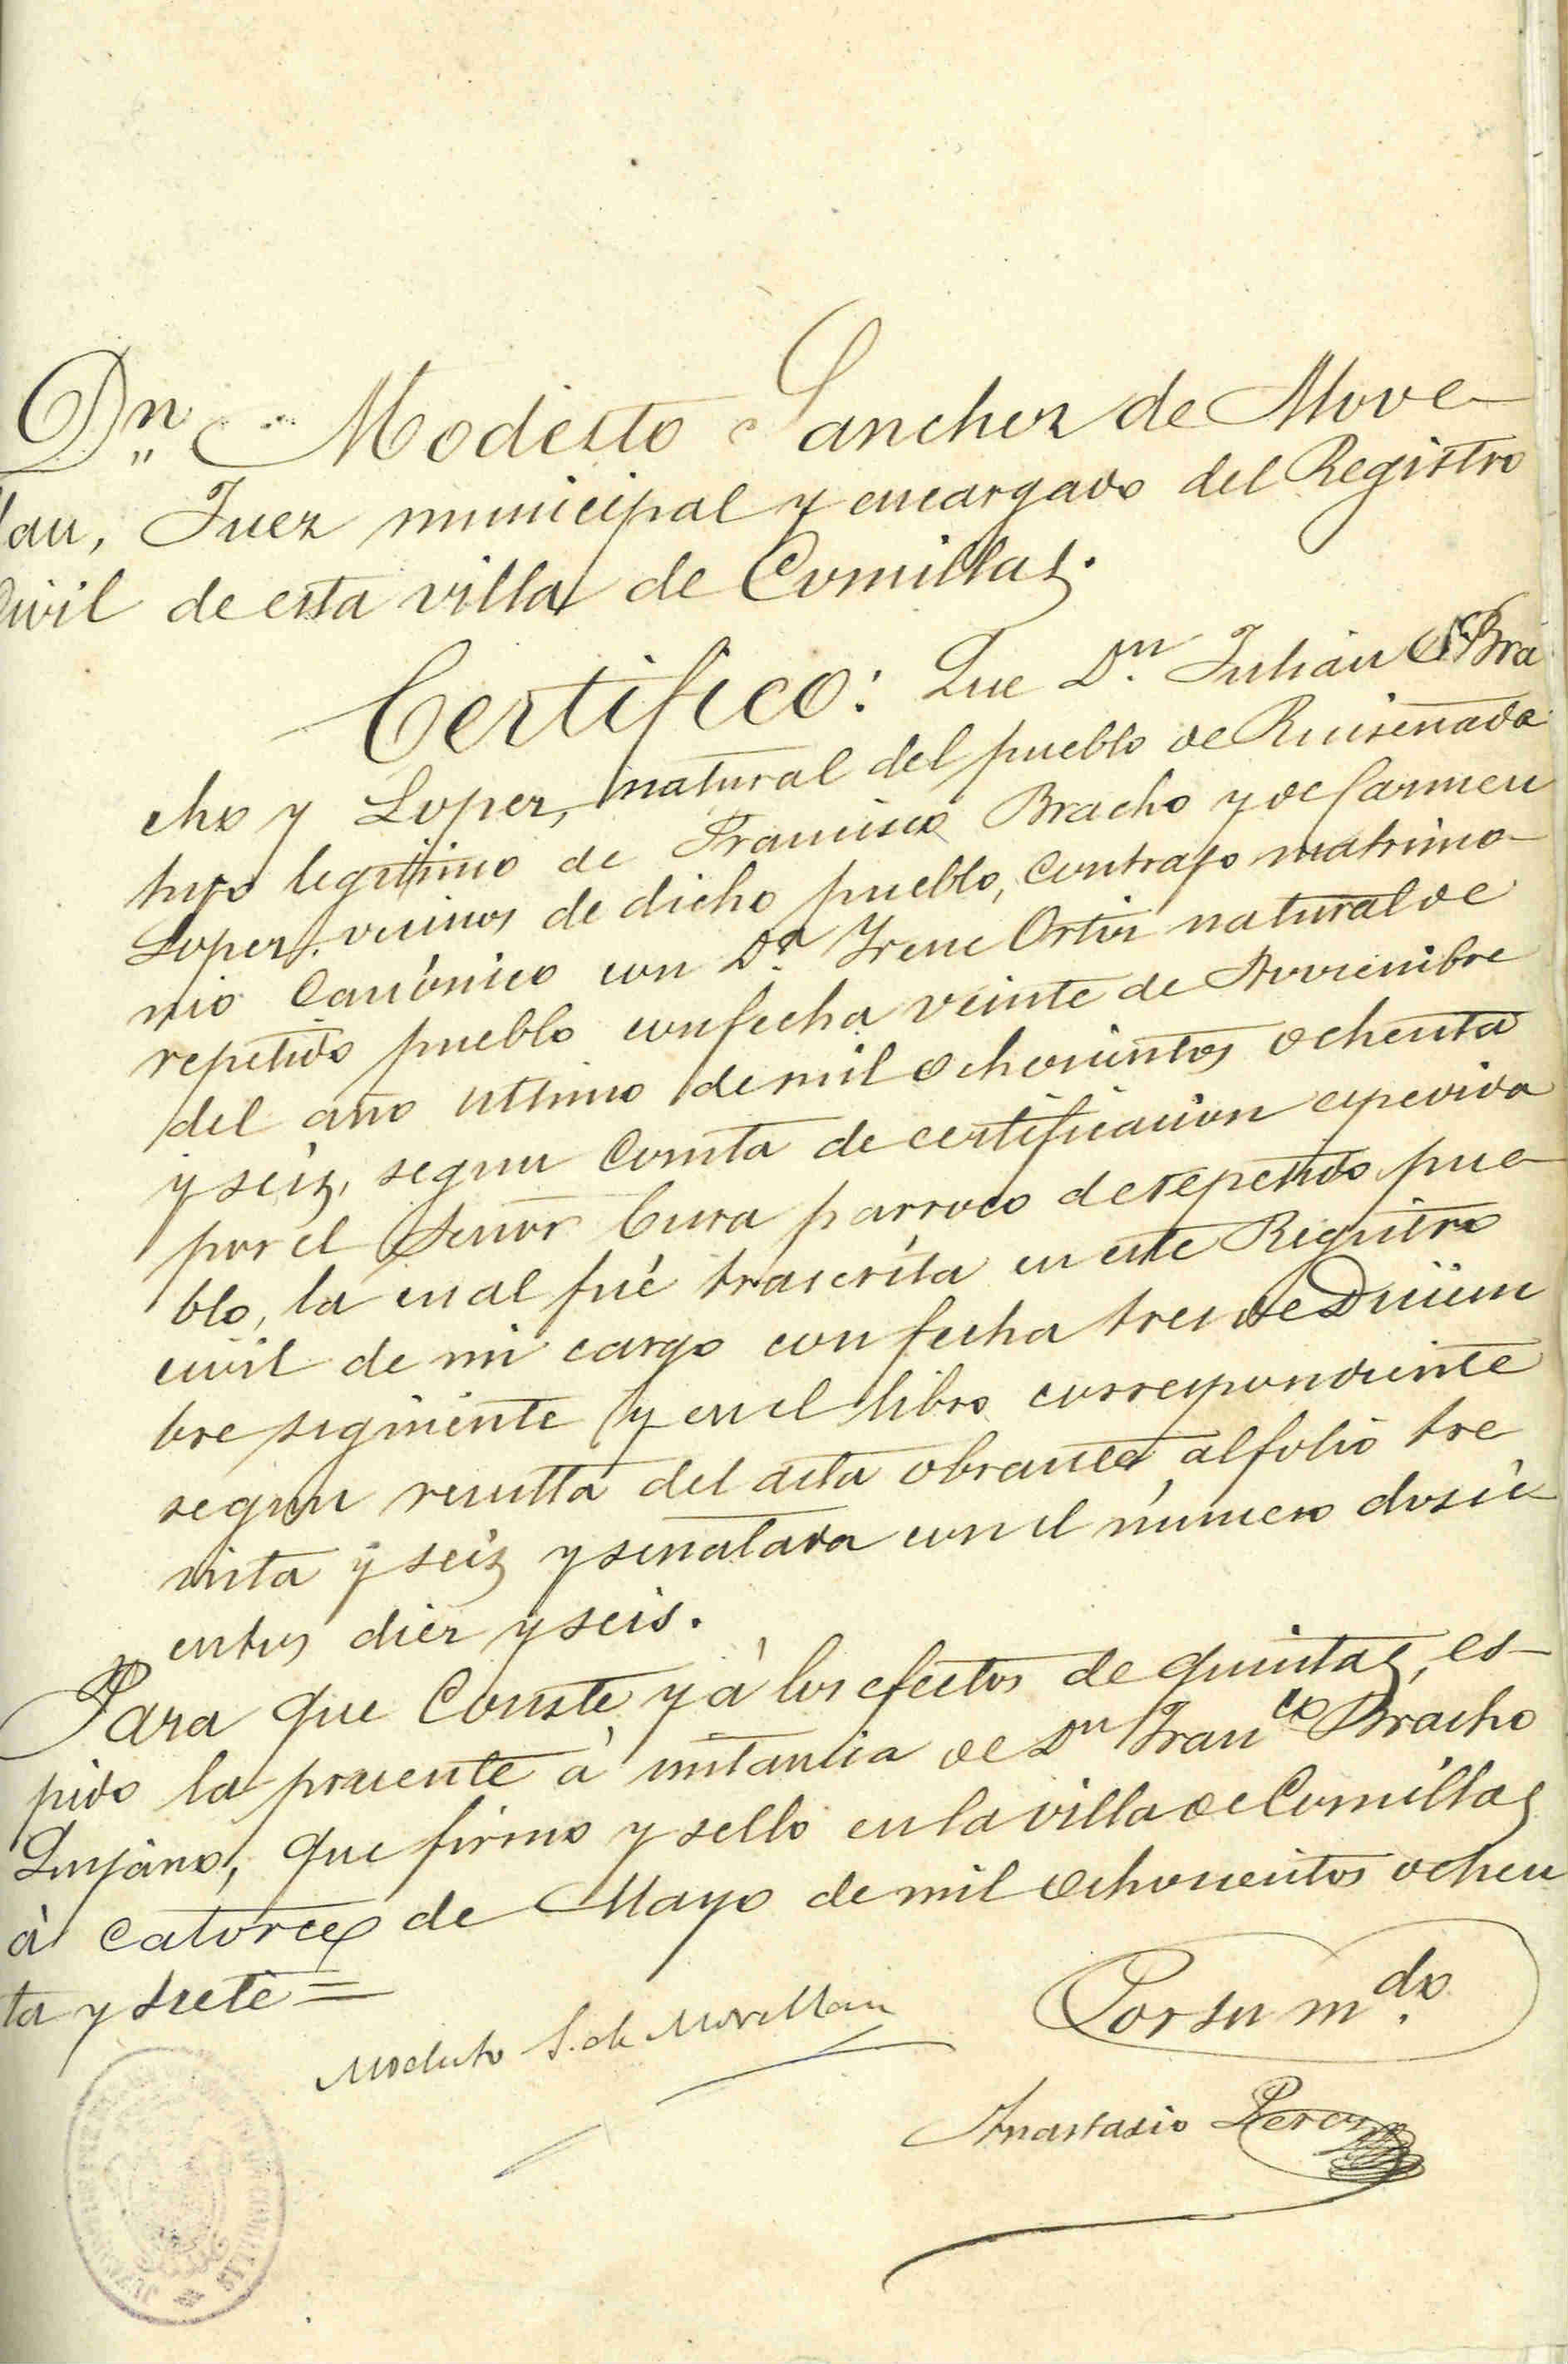 Dn. Modesto Sanchez de Move
llan, Juez municipal y encargado del Registro
Civil de esta villa de Comillas.
Certifico: Que Dn. Julián Bra
cho y Lopez, natural del pueblo de Ruiseñada
hijo legitimo de Francisco Bracho y de Carmen
Lopez, vecinos de dicho pueblo, contrajo matrimo-
nio Canónico con Da. Irene Ortiz natural de
repetido pueblo con fecha veinte de Noviembre
del año ultimo de mil ochocientos ochenta
y seis, segun consta de certificacion expedida
por el Señor Cura párroco de repetido pue-
blo, la cual fué trascrita en este Registro
civil de mi cargo con fecha tres de Diciem
bre siguiente y en el libro correspondiente
segun resulta del acta obrante al folio tre
inta y seis y señalada con el número dosci-
entos diez y seis.
Para que Conste y à los efectos de quintas, es-
pido la presente à instancia de Dn Franco Bracho
Quijano, que firmo y sello en la villa de Comillas
à catorce de Mayo de mil ochocientos ochen
ta y siete =
Modesto S. de Movellan
Por su mdo.
Anastasio Perez